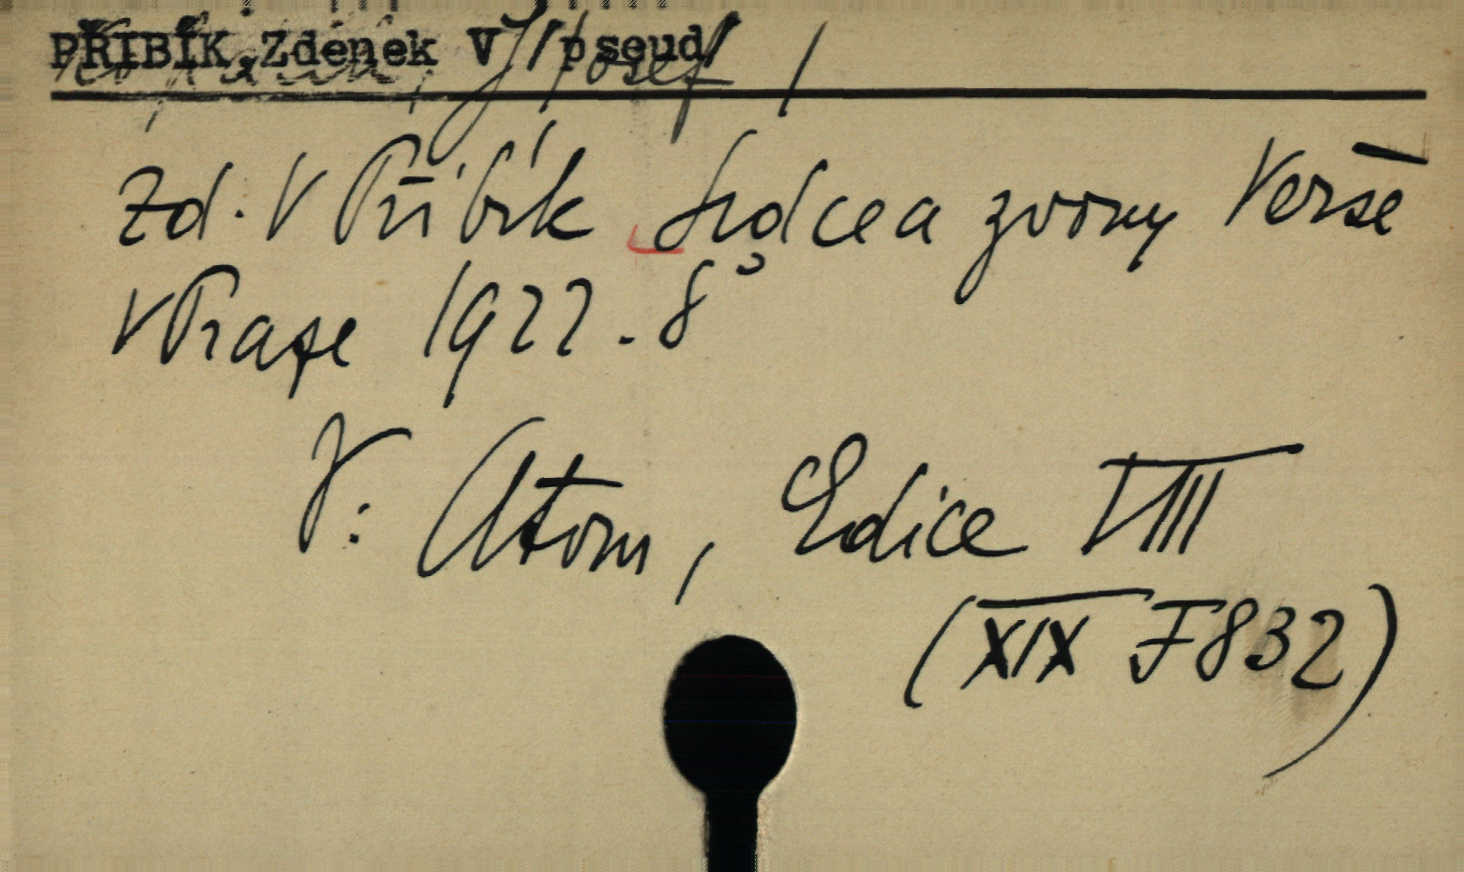 PŘIBÍK, Zdeněk V /pseud/
Josef /
Zd. V Přibík Srdce a zvony Verše
V Praze 1922. 8°
V: Atom, Edice VIII
(XIX F 832)